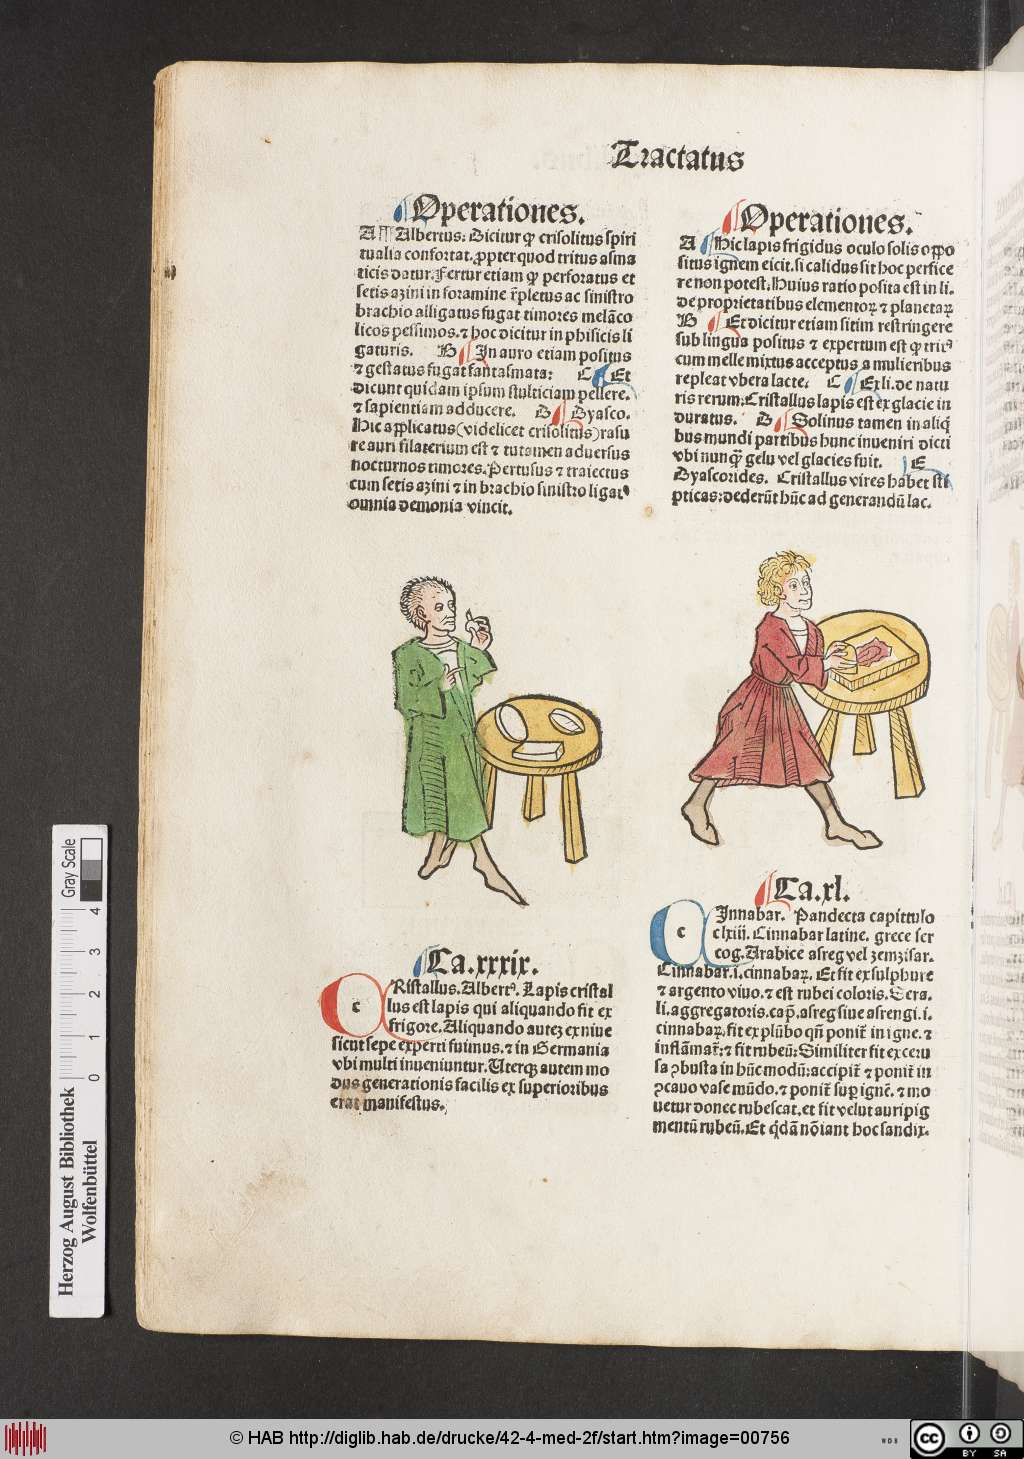 Tractatus
Operationes.
A Albertus: Dicitur qꝫ crisolitus spiri
tualia confortat. ꝓpter quod tritus asma
ticis datur. Fertur etiam qꝫ perforatus et
setis azini in foramine r̄pletus ac sinistro
brachio alligatus fugat timores melāco
licos pessimos. ⁊ hoc dicitur in phisicis li
gaturis. B In auro etiam positus
⁊ gestatus fugat fantasmata: C Et
dicunt quidam ipsum stulticiam pellere.
⁊ sapientiam adducere. D Dyasco.
Hic applicatus (videlicet crisolitus) rasu
re auri filaterium est ⁊ tutamen aduersus
nocturnos timores. Pertusus ⁊ traiectus
cum setis azini ⁊ in brachio sinistro ligatꝰ
omnia demonia vincit.
Ca.xxxix.
c Ristallus. Albertꝰ. Lapis cristal
lus est lapis qui aliquando fit ex
frigore. Aliquando autez ex niue
sicut sepe experti fuimus. ⁊ in Germania
vbi multi inueniuntur. Uterqꝫ autem mo
dus generationis facilis ex superioribus
erat manifestus.
Operationes.
A Hic lapis frigidus oculo solis oppo
situs ignem eicit. si calidus sit hoc perfice
re non potest. Huius ratio posita est in li.
de proprietatibus elementoꝝ ⁊ planetaꝝ
B Et dicitur etiam sitim restringere
sub lingua positus ⁊ expertum est qꝫ tritꝰ
cum melle mixtus acceptus a mulieribus
repleat vbera lacte: C Ex li. de natu
ris rerum. Cristallus lapis est ex glacie in
duratus. D Solinus tamen in aliqͥ
bus mundi partibus hunc inueniri dicit
vbi nunqꝫ gelu vel glacies fuit. E
Dyascorides. Cristallus vires habet sti
pticas: dederūt hūc ad generandū lac.
Ca.xl.
c Innabar. Pandecta capittulo
clxiij. Cinnabar latine. grece scr
cog. Arabice asreg vel zemzisar.
Cinnabar. i. cinnabaꝝ. Et fit ex sulphure
⁊ argento viuo. ⁊ est rubei coloris. Sera.
li. aggregatoris. cap̄. asreg siue asrengi. i.
cinnabaꝝ. fit ex plūbo qn̄ ponit̄ in igne. ⁊
inflāmat̄: ⁊ fit rubeū: Similiter fit ex ceru
sa ꝯbusta in hūc modū: accipit̄ ⁊ ponit̄ in
ꝯcauo vase mūdo. ⁊ ponit̄ suꝑ ignē. ⁊ mo
uetur donec rubescat. et fit velut auripig
mentū rubeū. Et qͥdā nōiant hoc sandix.
Gray Scale
0 1 2 3 4
Herzog August Bibliothek
Wolfenbüttel
© HAB http://diglib.hab.de/drucke/42-4-med-2f/start.htm?image=00756
WDB
cc
BY SA